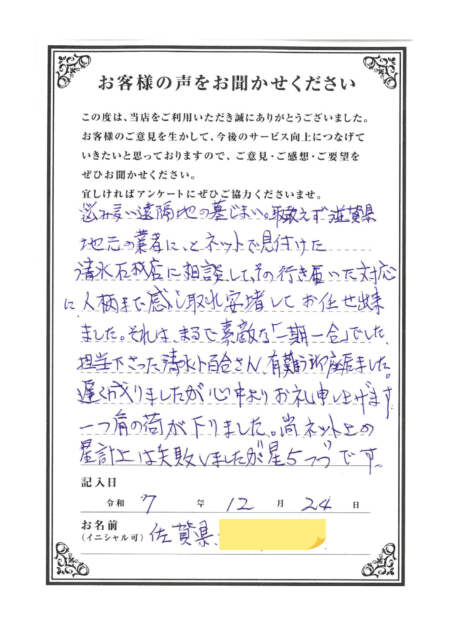 お客様の声をお聞かせください
この度は、当店をご利用いただき誠にありがとうございました。
お客様のご意見を生かして、今後のサービス向上につなげて
いきたいと思っておりますので、ご意見・ご感想・ご要望を
ぜひお聞かせください。
宜しければアンケートにぜひご協力くださいませ。
悩み多い遠隔地の墓じまい。取敢えず滋賀県
地元の業者に、とネットで見付けた
清水石材店に相談して、その行き届いた対応
に、人柄まで感じ取れ安堵してお任せ出来
ました。それは、まるで素敵な「一期一会」でした。
担当下さった清水小百合さん、有難う御座居ました。
遅く成りましたが心中よりお礼申し上げます。
一つ肩の荷が下りました。尚ネット上の
星計上は失敗しましたが星5つづです。
記入日
令和 7 年 12 月 24 日
お名前
(イニシャル可) 佐賀県